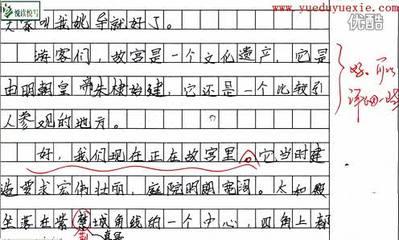 悦读悦写
www.yueduyuexie.com
优酷
叫我姚导就好了。
游客们,故宫是一个文化遗产,它是
由明朝皇帝朱棣始建,它还是一个比较引
人参观的地方。
好,我们现在正在故宫里。它当时建
造要求宏伟壮丽,庭院明朗宽阔。太和殿
坐落在紫禁城角线的一个中心,四角上都
好、可以